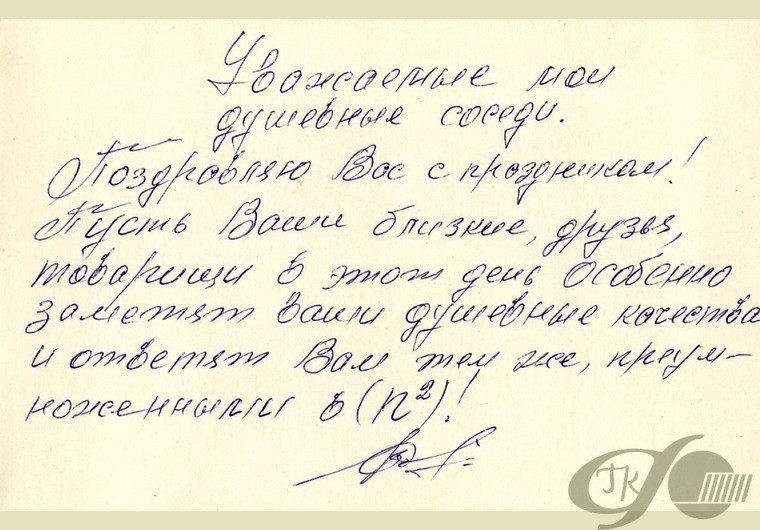 Уважаемые мои
душевные соседи.
Поздравляю Вас с праздником!
Пусть Ваши близкие, друзья,
товарищи в этот день особенно
заметят ваши душевные качества
и ответят Вам тем же, преум-
ноженными в (n²)!
ГК